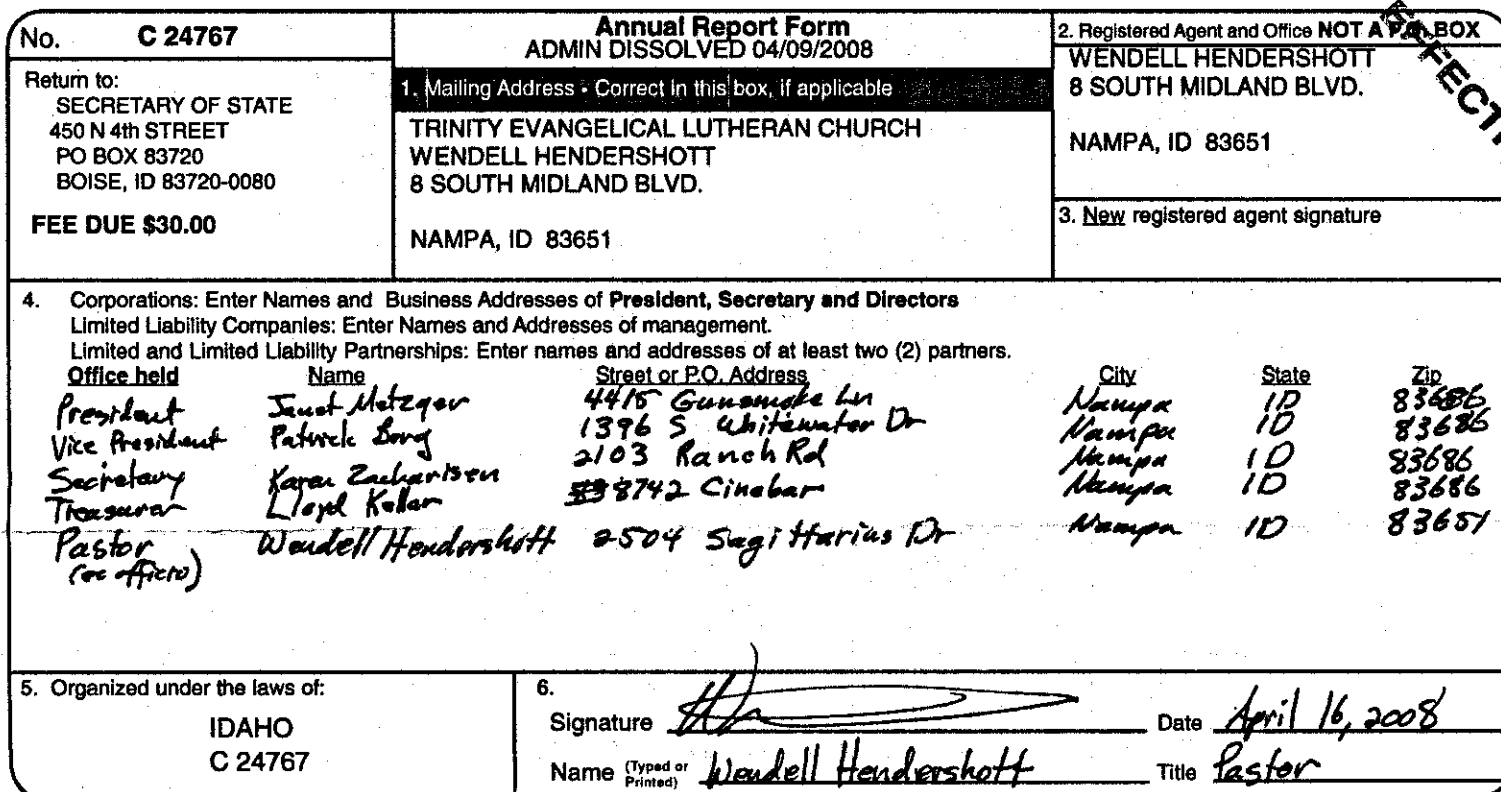 No. C 24767
Return to:
SECRETARY OF STATE
450 N 4th STREET
PO BOX 83720
BOISE, ID 83720-0080
FEE DUE $30.00
Annual Report Form
ADMIN DISSOLVED 04/09/2008
1. Mailing Address - Correct in this box, if applicable
TRINITY EVANGELICAL LUTHERAN CHURCH
WENDELL HENDERSHOTT
8 SOUTH MIDLAND BLVD.
NAMPA, ID 83651
2. Registered Agent and Office NOT A P.O. BOX
WENDELL HENDERSHOTT
8 SOUTH MIDLAND BLVD.
NAMPA, ID 83651
3. New registered agent signature
4. Corporations: Enter Names and Business Addresses of President, Secretary and Directors
Limited Liability Companies: Enter Names and Addresses of management.
Limited and Limited Liability Partnerships: Enter names and addresses of at least two (2) partners.
Office held Name Street or P.O. Address City State Zip
President Janet Metzger 4415 Gunsmoke Ln Nampa ID 83686
Vice President Patrick Borg 1396 S Whitewater Dr Nampa ID 83686
Secretary Karen Zacharisen 2103 Ranch Rd Nampa ID 83686
Treasurer Lloyd Keller 8742 Cinebar Nampa ID 83686
Pastor Wendell Hendershott 2504 Sagittarius Dr Nampa ID 83651
(ex officio)
5. Organized under the laws of:
IDAHO
C 24767
6.
Signature Date April 16, 2008
Name (Typed or Printed) Wendell Hendershott Title Pastor